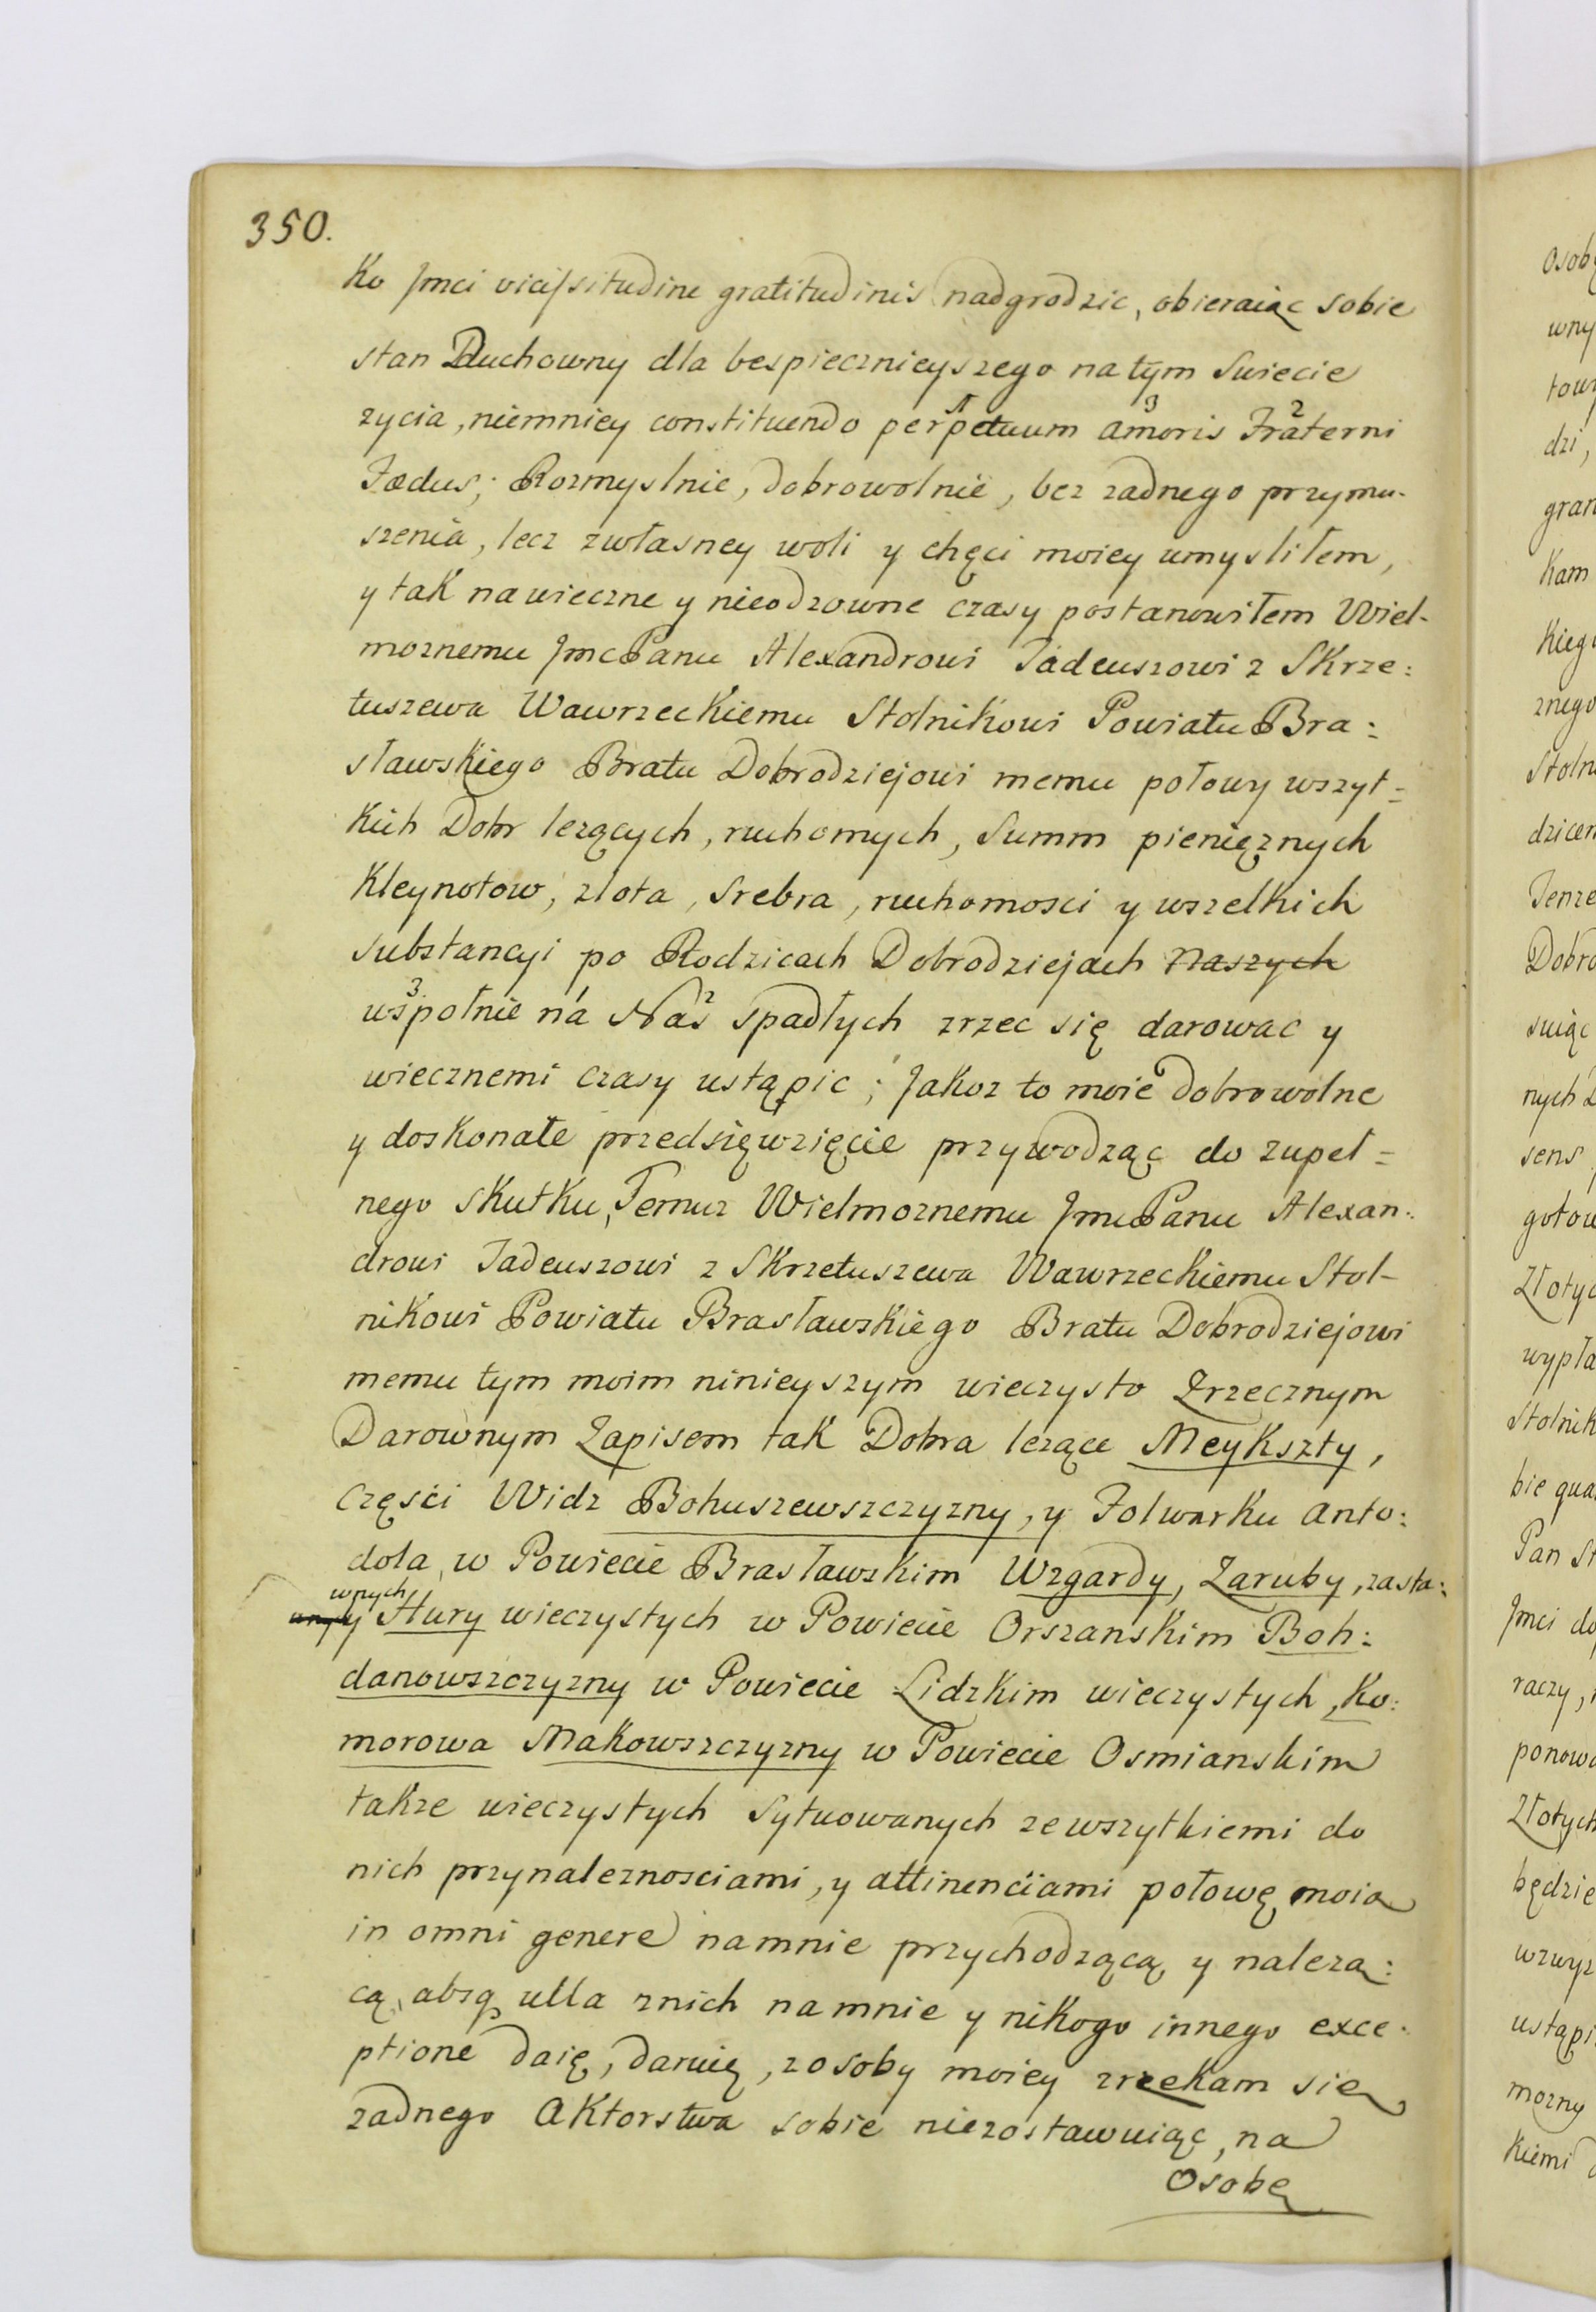 350.
Ko Jmci vicissitudine gratitudinis nadgrodzic, obieraiąc sobie
stan Duchowny dla bespiecznieyszego na tym Swiecie
zycia, niemniey constituendo perpetuum 1 amoris 3 Fraterni 2
Fœdus; Rozmyslnie, dobrowolnie, bez zadnego przymu-
szenia, lecz zwłasney woli y chęci moiey umysliłem,
y tak nawieczne y nieodzowne czasy postanowiłem Wiel-
moznemu JmcPanu Alexandrowi Tadeuszowi z Skrze:
tuszewa Wawrzeckiemu Stolnikowi Powiatu Bra:
sławskiego Bratu Dobrodziejowi memu połowy wszyt=
kich Dobr lezących, ruchomych, Summ pienięznych
Kleynotow, złota, srebra, ruchomosci y wszelkich
substancyi po Rodzicach Dobrodziejach naszych
wspolnie 3 na 1 Nas 2 spadłych zrzec się darowac y
wiecznemi czasy ustąpic; Jakoz to moie dobrowolne
y doskonałe przedsięwzięcie przywodząc do zupeł=
nego skutku, Temuz Wielmoznemu JmcPanu Alexan:
drowi Tadeuszowi z Skrzetuszewa Wawrzeckiemu Stol-
nikowi Powiatu Brasławskiego Bratu Dobrodziejowi
memu tym moim ninieyszym wieczysto Zrzecznym
Darownym Zapisem tak Dobra lezące Meykszty,
Częsci Widz Bohuszewszczyzny, y Folwarku Anto:
dola, w Powiecie Brasławskim Wzgardy, Zaruby, zasta:
wnych
y Hury wieczystych w Powiecie Orszanskim Boh:
danowszczyzny w Powiecie Lidzkim wieczystych, Ko:
morowa Makowszczyzny w Powiecie Osmianskim
takze wieczystych sytuowanych zewszytkiemi do
nich przynaleznosciami, y attinenciami połowę moią
in omni genere namnie przychodzącą y nalezą:
cą, absq ulla znich na mnie y nikogo innego exce-
ptione daię, daruię, zosoby moiey zrzekam się
zadnego Aktorstwa sobie niezostawuiąc, na
Osobę
osob
wny
tow
dzi,
gran
Kam
Kieg
znego
Stoln
dzicen
Tenze
Dobro
suiąc
nych
sens
gotow
Złotyc
wypła
Stolnik
bie qua
Pan St
Jmci do
raczy,
ponow
Złotych
będzie
wzwyz
ustąpi
mozny
Kiemi